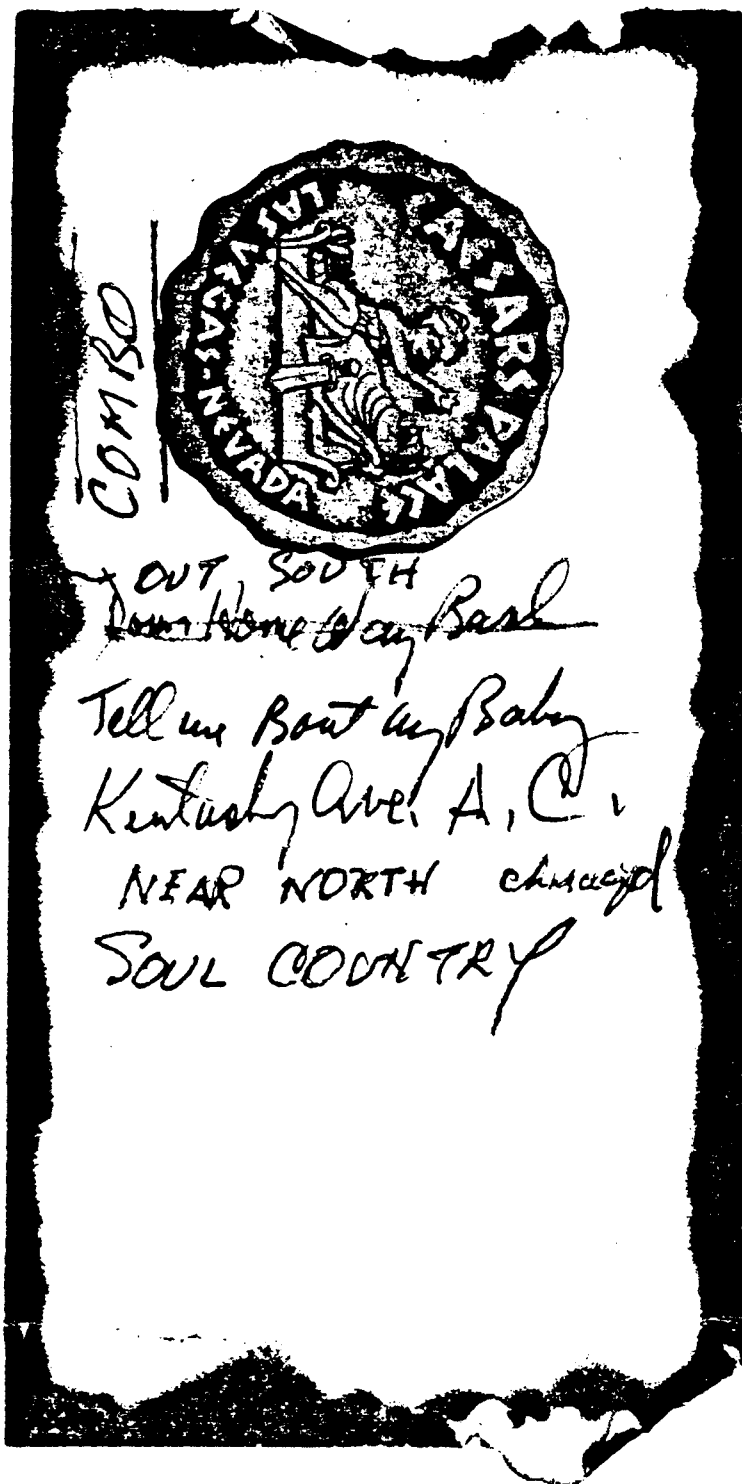 CAESARS PALACE
LAS VEGAS-NEVADA
COMBO
OUT SOUTH
Down Home Way Back
Tell me Bout my Baby
Kentucky Ave. A.C.
NEAR NORTH
SOUL COUNTRY